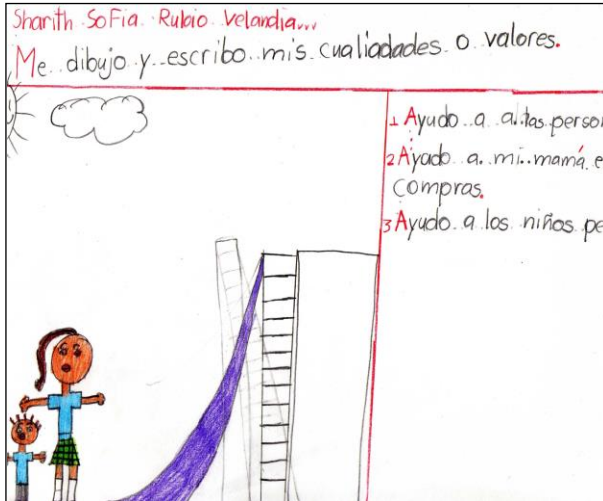 Sharith SoFia Rubio Velandia...
Me dibujo y escribo mis cualiadades o valores.
1 Ayudo a a.tas
2 Ayudo a mi mamá
compras.
3 Ayudo a los niños